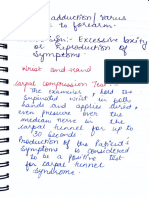 adduction/varus
to forearm.
Excessive laxity
or Reproduction of
Symptoms
Wrist and Hand
Carpal Compression Test -
The examiner, hold the
supinated wrist in both
hands and applies direct,
even pressure over the
median nerve in the
carpal tunnel for up to
30 seconds.
Production of the Patient's
Symptoms is considered
to be a positive test
for carpal tunnel
syndrome.